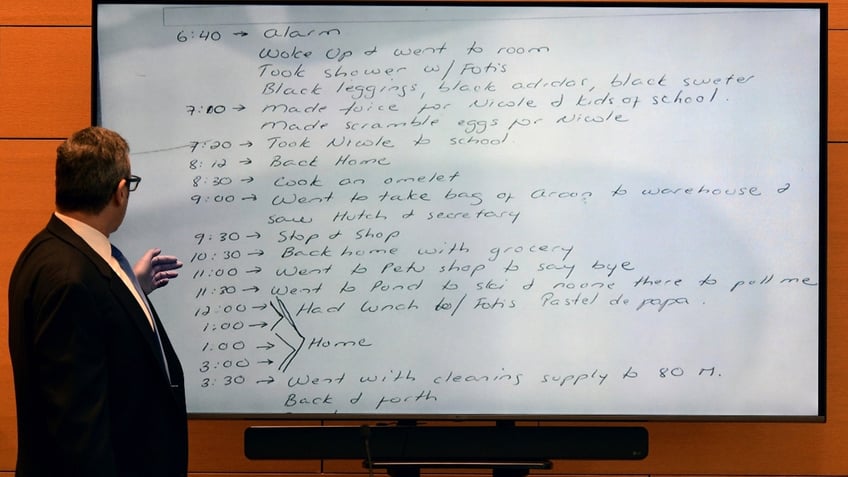 6:40 → Alarm
Woke Up & went to room
Took shower w/ Fotis
Black leggings, black adidas, black sweter
7:00 → Made juice for Nicole & kids of school.
Made scramble eggs for Nicole
7:20 → Took Nicole to school.
8:12 → Back Home
8:30 → Cook an omelet
9:00 → Went to take bag of to warehouse &
saw Hutch & secretary
9:30 → Stop & Shop
10:30 → Back home with grocery
11:00 → Went to Petu shop to say bye
11:30 → Went to Pond to ski & noone there to pull me
12:00 → Had lunch w/ Fotis Pastel de papa.
1:00 →
1:00 → Home
3:00 →
3:30 → Went with cleaning supply to 80 M.
Back & forth